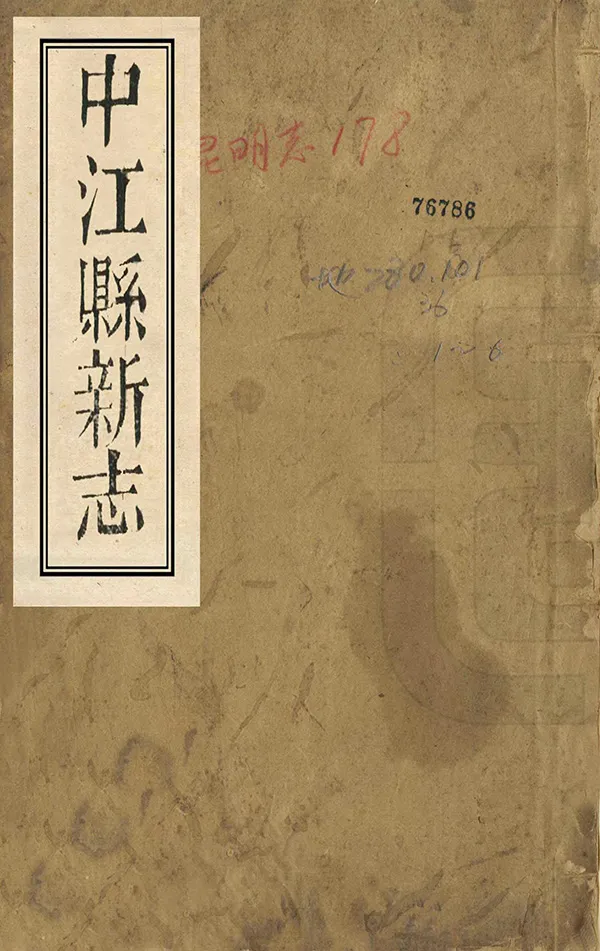 中江縣新志
明志178
76786
280.101
36
1~6